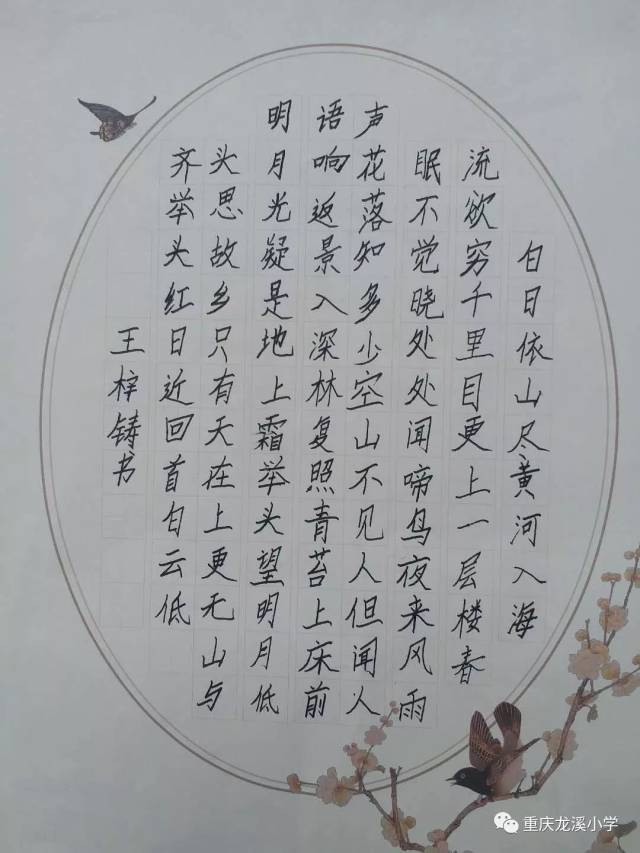 白日依山尽黄河入海
流欲穷千里目更上一层楼春
眠不觉晓处处闻啼鸟夜来风雨
声花落知多少空山不见人但闻人
语响返景入深林复照青苔上床前
明月光疑是地上霜举头望明月低
头思故乡只有天在上更无山与
齐举头红日近回首白云低
王梓铸书
重庆龙溪小学